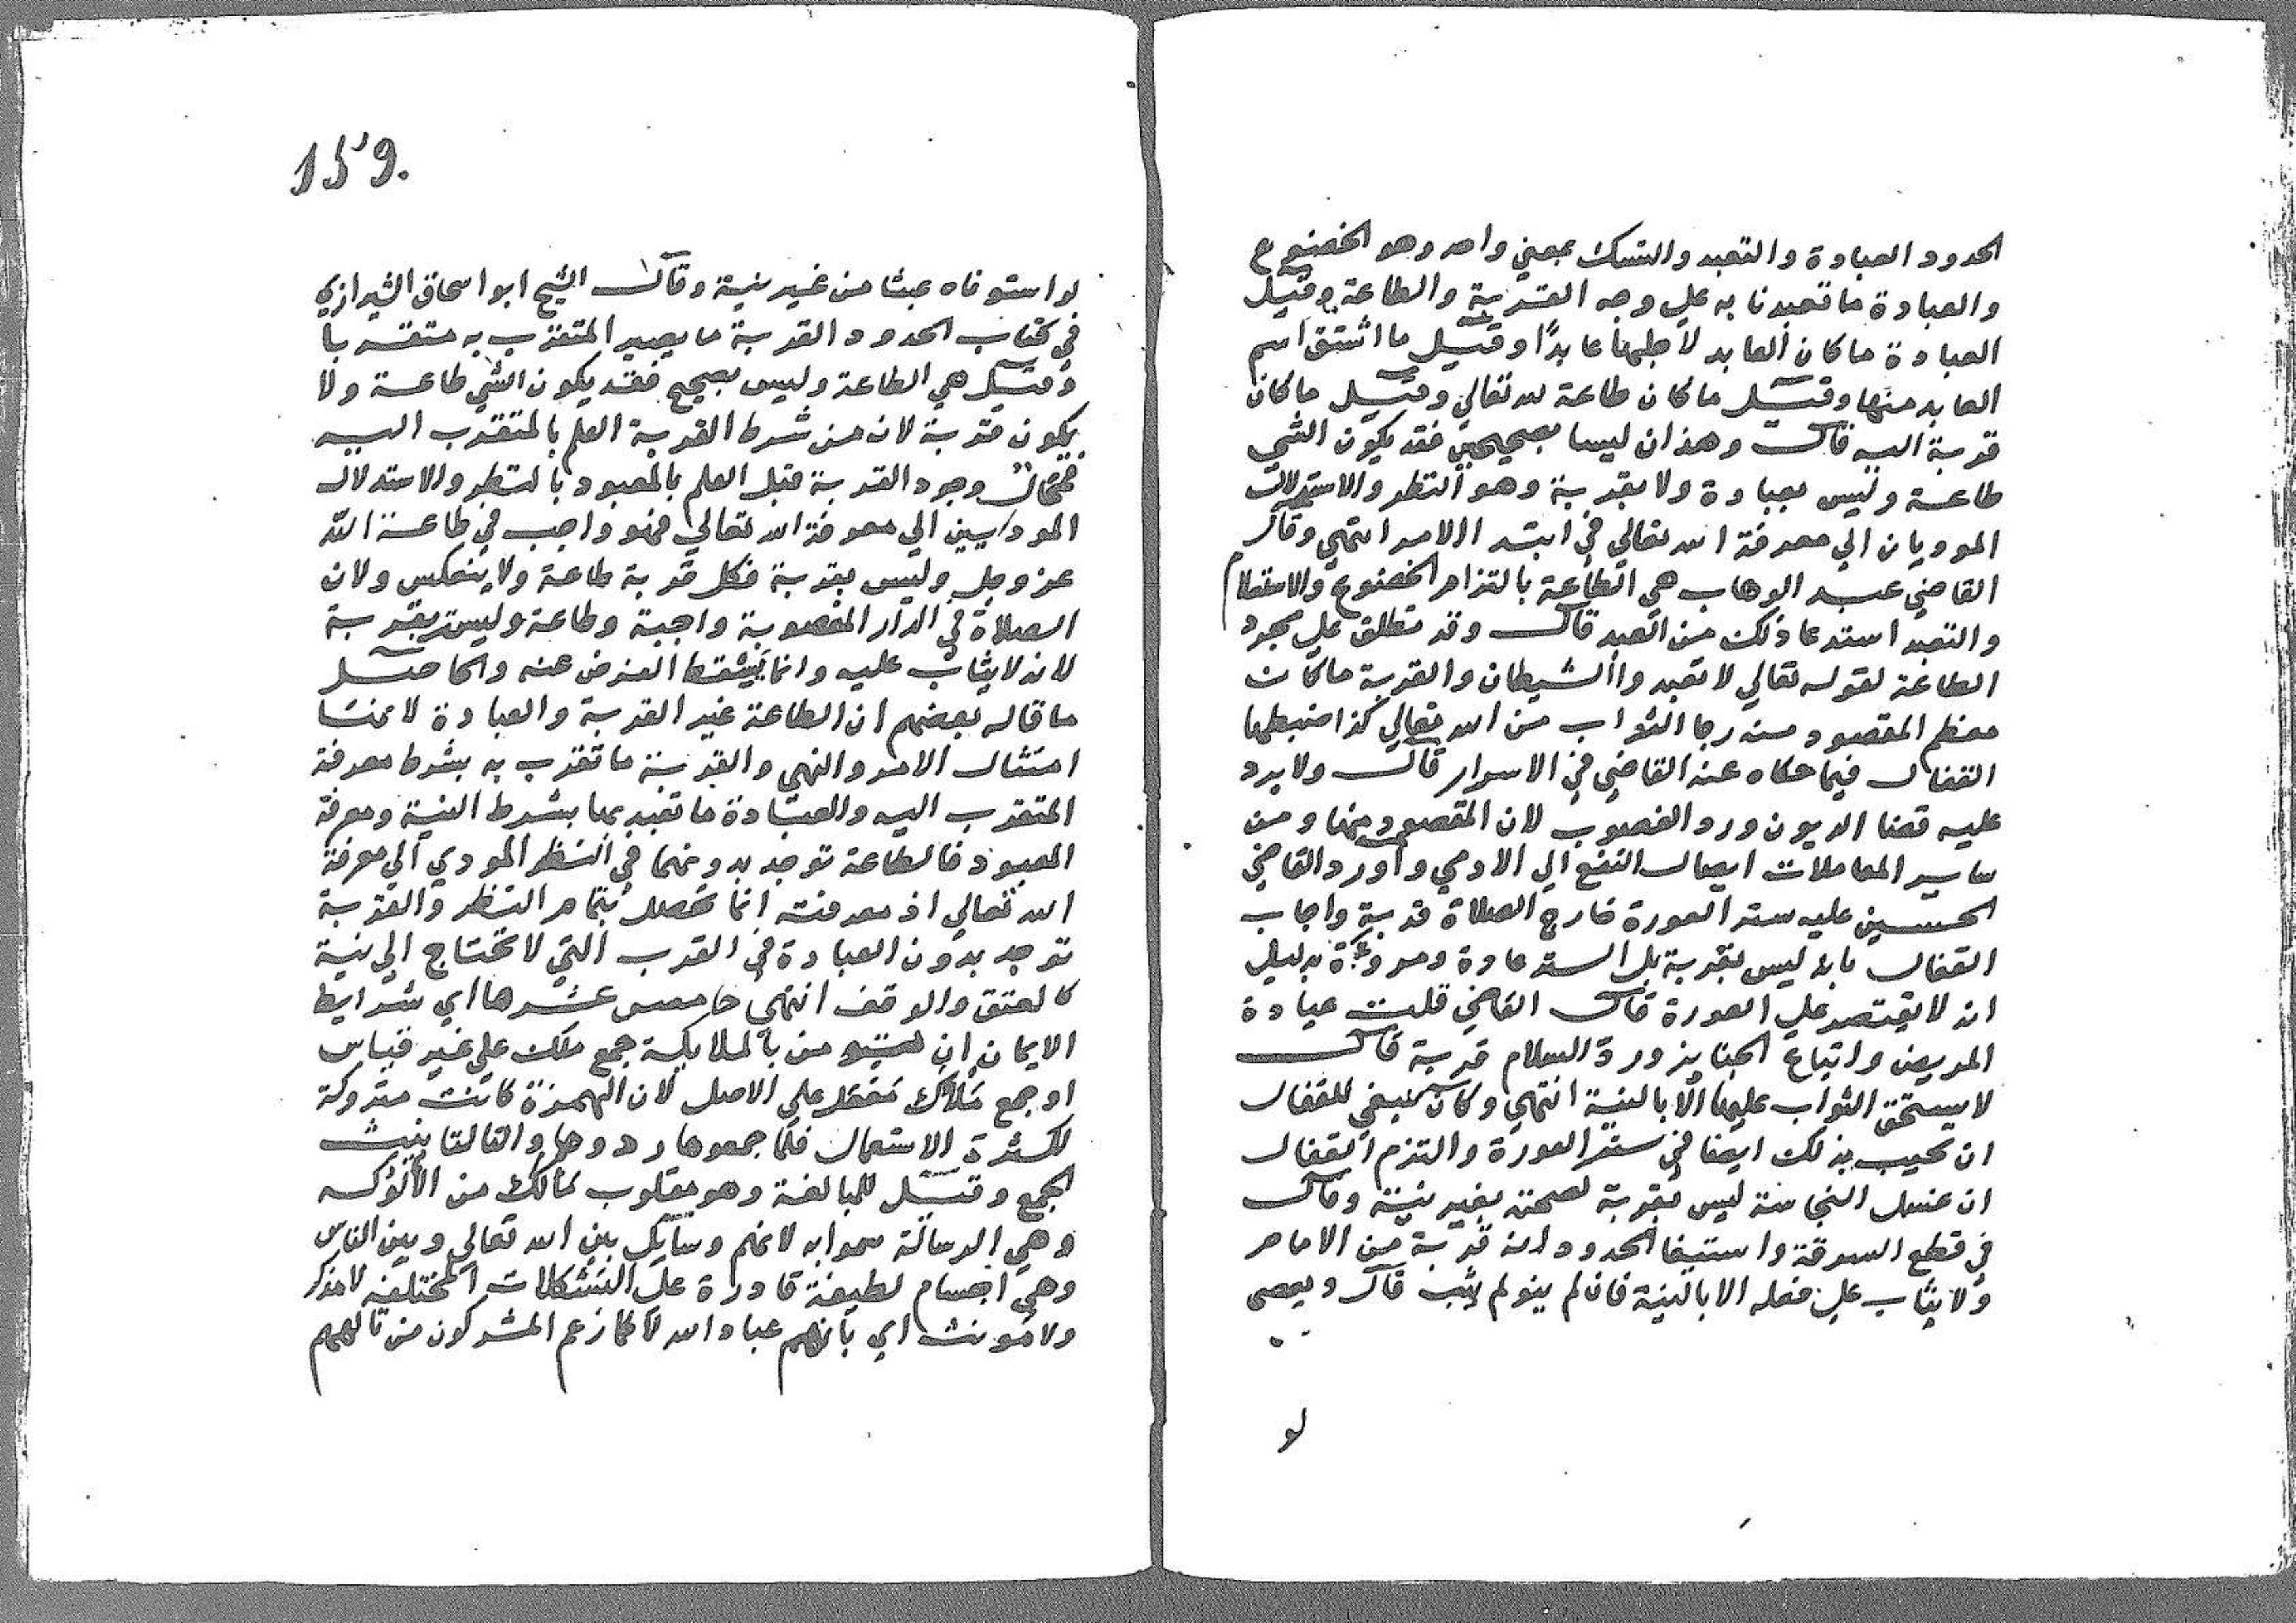 الحدود العبادة والتعبد والتنسك بمعني واحد وهو الخضوع
والعبادة ما تعبدنا به علي وجه القربة والطاعة وقيل
العبادة ما كان العابد لاجلها عابدًا وقيل ما اشتق اسم
العابد منها وقيل ما كان طاعة لله تعالي وقيل ما كان
قربة اليه قال وهذان ليسا بصحيحين فقد يكون الشي
طاعة وليس بعبادة ولا بقربة وهو النظر والاستدلال
الموديان الي معرفة الله تعالي في ابتد الامر انتهي وقال
القاضي عبد الوهاب هي الطاعة بالتزام الخضوع والاستسلام
والتعبد استدعا ذلك من العبد قال وقد تطلق علي مجرد
الطاعة لقوله تعالي لا تعبدوا الشيطان والقربة ما كان
معظم المقصود منه رجا الثواب من الله تعالي كذا ضبطها
القفال فيما حكاه عنه القاضي في الاسرار قال ولا يرد
عليه قضا الديون ورد الغصوب لان المقصود منها ومن
ساير المعاملات ايصال النفع الي الادمي واورد القاضي
الحسين عليه ستر العورة خارج الصلاة قربة واجاب
القفال بانه ليس بقربة بل الستر عادة ومروءة بدليل
انه لا يقتصر علي العورة قال القاضي قلت عيادة
المريض واتباع الجنايز ورد السلام قربة قال
لا يستحق الثواب عليها الا بالنية انتهي وكان ينبغي للقفال
ان يجيب بذلك ايضا في ستر العورة والتزم القفال
ان غسل النجاسة ليس بقربة لصحته بغير نية وقال
في قطع السرقة واستيفا الحدود انه قربة من الامام
ولا يثاب علي فعله الا بالنية فان لم ينو لم يثب قال ويعصي
لو
159.
لو استوفاه عبثا من غير نية وقال الشيخ ابو اسحاق الشيرازي
في كتاب الحدود القربة ما يصير المتقرب به متقربا
وقيل هي الطاعة وليس بصحيح فقد يكون الشي طاعة ولا
يكون قربة لان من شرط القربة العلم بالمتقرب اليه
فمحال وجود القربة قبل العلم بالمعبود بالنظر والاستدلال
الموديين الي معرفة الله تعالي فهو واجب في طاعة الله
عز وجل وليس بقربة فكل قربة طاعة ولا ينعكس ولان
الصلاة في الدار المغصوبة واجبة وطاعة وليست بقربة
لانه لا يثاب عليه وانما يسقط الفرض عنه والحاصل
ما قاله بعضهم ان الطاعة غير القربة والعبادة لانها
امتثال الامر والنهي والقربة ما تقرب به بشرط معرفة
المتقرب اليه والعبادة ما تعبد بها بشرط النية ومعرفة
المعبود فالطاعة توجد بدونهما في النظر المودي الي معرفة
الله تعالي اذ معرفته انما تحصل بتمام النظر والقربة
توجد بدون العبادة في القرب التي لا تحتاج الي نية
كالعتق والوقف انتهي خامس عشرها اي شرايط
الايمان ان من بالملايكة جمع ملك علي غير قياس
او جمع ملاك مفعل علي الاصل لان الهمزة كانت متروكة
لكثرة الاستعمال فلما جمعوها ردوها والتا لتانيث
الجمع وقيل للمبالغة وهو مقلوب مالك من الالوكه
وهي الرسالة سموا به لانهم وسايل بين الله تعالي وبين الناس
وهي اجسام لطيفة قادرة علي التشكلات المختلفه لا مذكر
ولا مونث اي بانهم عباد الله لا كما زعم المشركون من تالههم